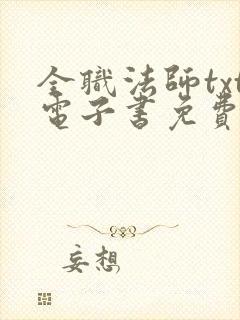 全職法師txt
電子書免費
妄想